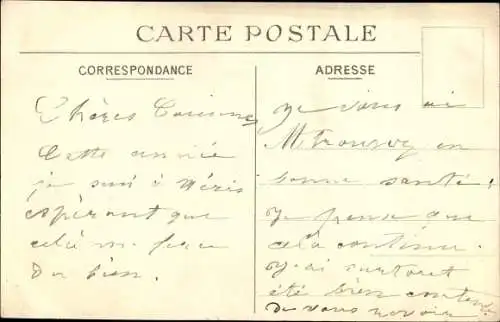 CARTE POSTALE
CORRESPONDANCE
Chères Cousines
Cette année
je suis à Néris
espérant que
celà me fera
du bien.
ADRESSE
je vous ai
en
bonne santé!
je pense que
cela continue.
j'ai surtout
été bien
de vous revoir